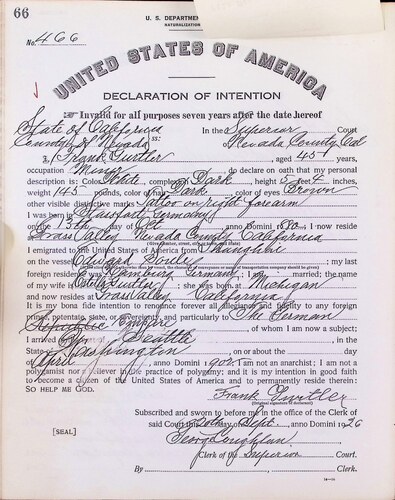 66
U. S. DEPARTMEN
NATURALIZATION
No. 466
UNITED STATES OF AMERICA
DECLARATION OF INTENTION
Invalid for all purposes seven years after the date hereof
State of California
In the Superior Court
County of Nevada ss:
Nevada County Cal
I, Frank Gurtler, aged 45 years,
occupation Miner, do declare on oath that my personal
description is: Color White, complexion Dark, height 5 feet 4 inches,
weight 145 pounds, color of hair Dark, color of eyes Brown
other visible distinctive marks Tattoo on right forearm
I was born in Germany
on the 15th day of Oct, anno Domini 1880; I now reside
at Grass Valley Nevada County California
I emigrated to the United States of America from
on the vessel Edward; my last
foreign residence was Hamburg Germany; I am married; the name
of my wife is Gurtler; she was born at Michigan
and now resides at Grass Valley California
It is my bona fide intention to renounce forever all allegiance and fidelity to any foreign
prince, potentate, state, or sovereignty, and particularly to The German
Empire, of whom I am now a subject;
I arrived at Seattle, in the
State of Washington, on or about the day
of April, anno Domini 1902; I am not an anarchist; I am not a
polygamist nor a believer in the practice of polygamy; and it is my intention in good faith
to become a citizen of the United States of America and to permanently reside therein:
SO HELP ME GOD.
Frank Gurtler
(Original signature of declarant)
Subscribed and sworn to before me in the office of the Clerk of
[SEAL]
said Court this 20 day of Sept. anno Domini 1926
Clerk of the Superior Court.
By, Clerk.